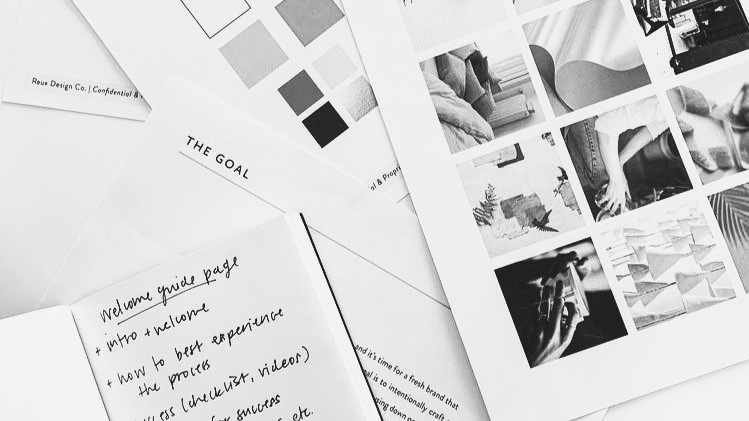 Reux Design Co. | Confidential &
THE GOAL
al & Propri
Welcome guide page
+ intro + welcome
+ how to best experience
the process
(checklist, videos)
success
etc.
and it's time for a fresh brand that
al is to intentionally craft
sing down on